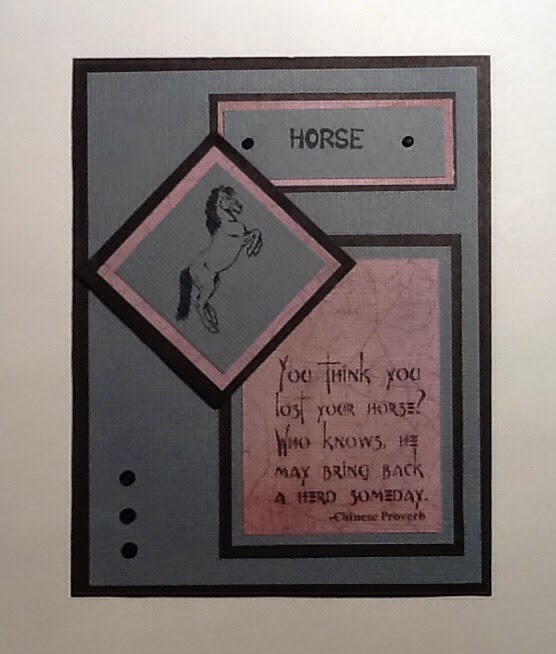 HORSE
YOU THINK YOU
LOST YOUR HORSE?
WHO KNOWS, HE
MAY BRING BACK
A HERD SOMEDAY.
-Chinese Proverb